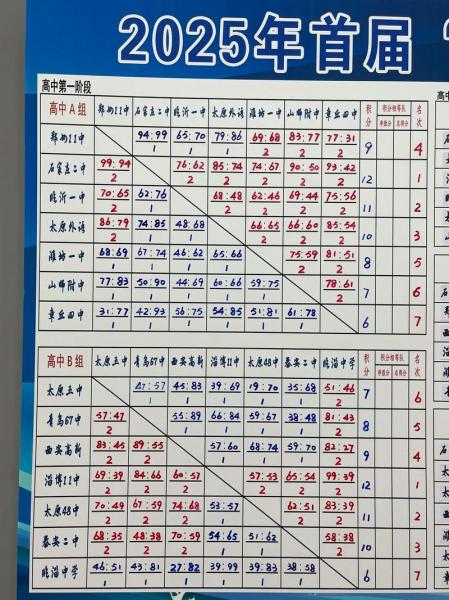 2025年首届
高中第一阶段
高中A组 郑州11中 石家庄二中 临沂一中 太原外语 潍坊一中 山师附中 章丘四中 积分 积分相等队 名次
郑州11中 94:99 1 65:70 1 79:86 1 69:68 2 83:77 2 77:31 2 9 4
石家庄二中 99:94 2 76:62 2 85:74 2 74:67 2 90:50 2 93:42 2 12 1
临沂一中 70:65 2 62:76 1 68:48 2 62:46 2 69:44 2 75:56 2 11 2
太原外语 86:79 2 74:85 1 48:68 1 66:65 2 66:60 2 85:54 2 10 3
潍坊一中 68:69 1 67:74 1 46:62 1 65:66 1 75:59 2 81:51 2 8 5
山师附中 77:83 1 50:90 1 44:69 1 60:66 1 59:75 1 78:61 2 7 6
章丘四中 31:77 1 42:93 1 56:75 1 54:85 1 51:81 1 61:78 1 6 7
高中B组 太原五中 青岛67中 西安高新 淄博11中 太原48中 泰安二中 临淄中学 积分 积分相等队 名次
太原五中 47:57 1 45:83 1 39:69 1 49:70 1 35:68 1 51:46 2 7 6
青岛67中 57:47 2 55:89 1 66:84 1 59:67 1 38:48 1 81:43 2 8 5
西安高新 83:45 2 89:55 2 57:60 1 68:74 1 59:70 1 82:27 2 9 4
淄博11中 69:39 2 84:66 2 60:57 2 57:53 2 65:54 2 99:39 2 12 1
太原48中 70:49 2 67:59 2 74:68 2 53:57 1 62:51 2 83:39 2 11 2
泰安二中 68:35 2 48:38 2 70:59 2 54:65 1 51:62 1 58:38 2 10 3
临淄中学 46:51 1 43:81 1 27:82 1 39:99 1 39:83 1 38:58 1 6 7